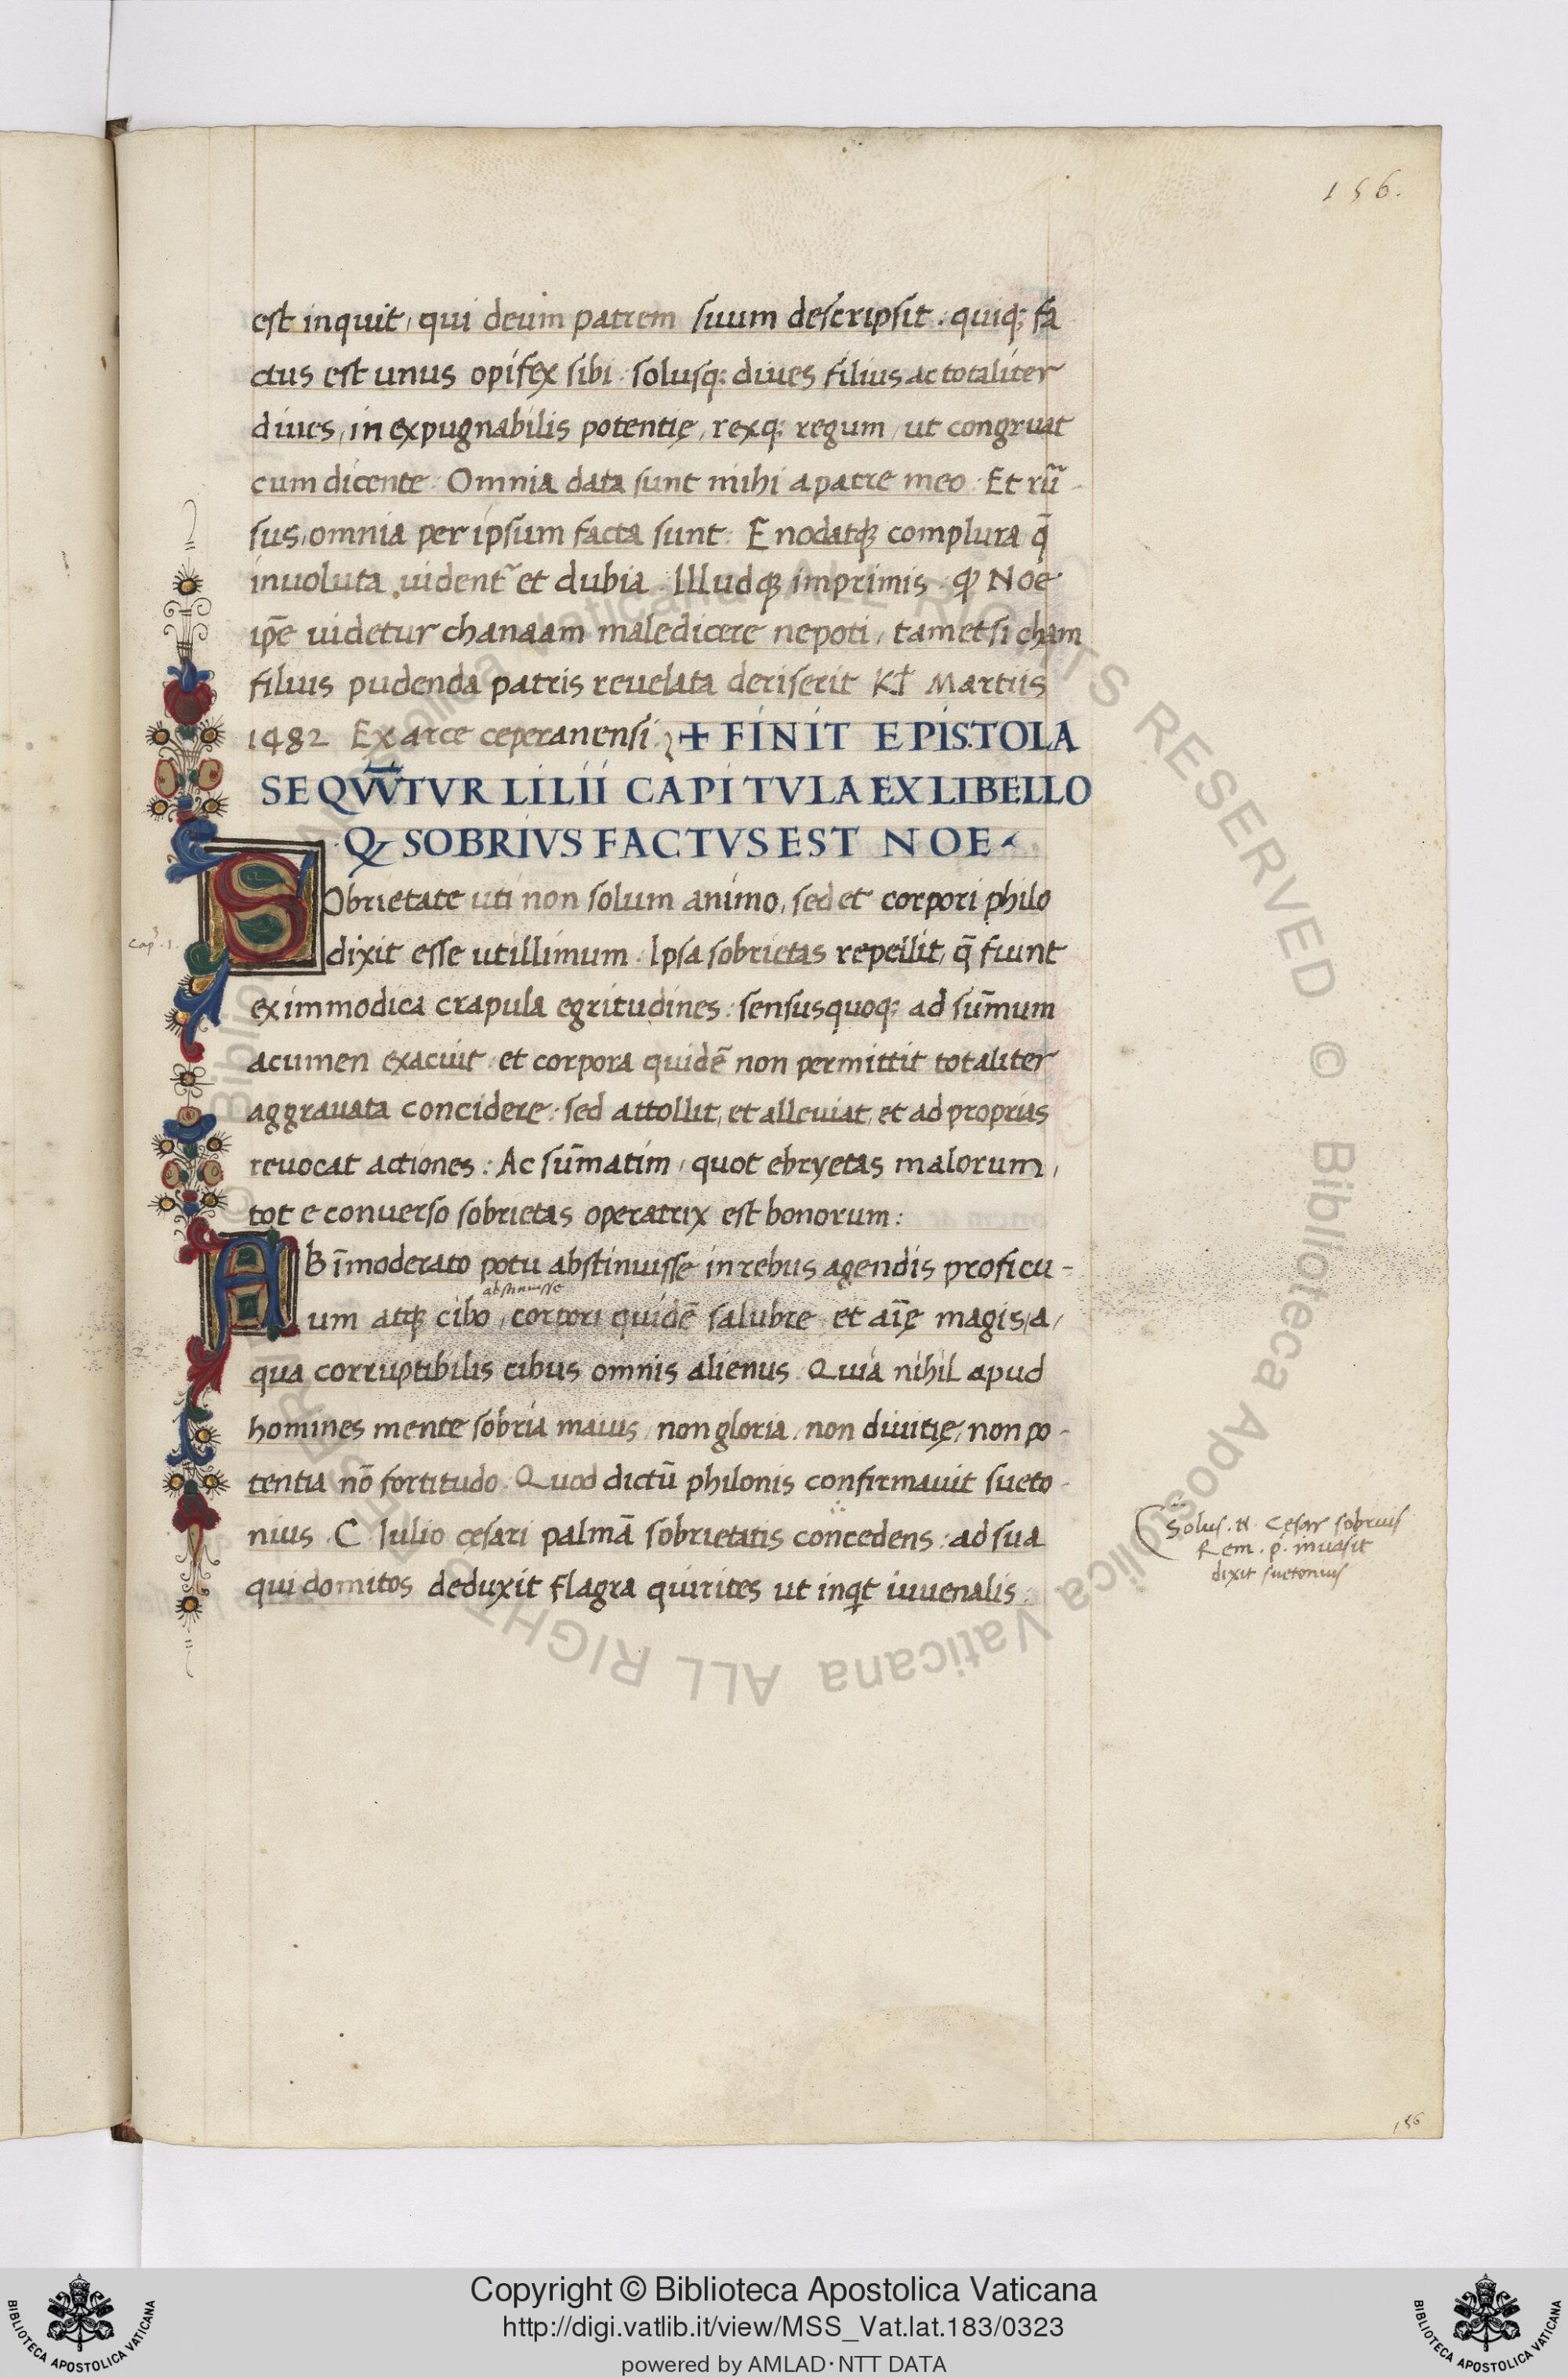 156.
est inquit, qui deum patrem suum descripsit: quiq; fa
ctus est unus opifex sibi: solusq; diues filius ac totaliter
diues, inexpugnabilis potentię, rexq; regum, ut congruat
cum dicente: Omnia data sunt mihi a patre meo. Et rū
sus, omnia per ipsum facta sunt. Enodatq; complura q̄
inuoluta uident᷑ et dubia. Illudq; imprimis. ꝙ Noe
ip̄e uidetur chanaam maledicere nepoti, tametsi cham
filius pudenda patris reuelata deriserit Kł Martiis
1482 Ex arce ceperanensi. + FINIT EPISTOLA
SEQVVTVR LILII CAPITVLA EX LIBELLO
Q SOBRIVS FACTVS EST NOE
SObrietate uti non solum animo, sed et corpori philo
Cap. 1.
dixit esse utillimum. Ipsa sobrietas repellit, q̄ fiunt
ex immodica crapula egritudines: sensusquoq; ad sum̄um
acumen exacuit et corpora quidē non permittit totaliter
aggrauata concidere: sed attollit, et alleuiat, et ad proprias
reuocat actiones: Ac sum̄atim, quot ebryetas malorum,
tot e conuerso sobrietas operatrix est bonorum:
AB im̄oderato potu abstinuisse in rebus agendis proficu-
abstinuisse
um atq; cibo, corpori quidē salubre et aīę magis, a,
qua corruptibilis cibus omnis alienus. Quia nihil apud
homines mente sobria maius, non gloria, non diuitię, non po-
tentia nō fortitudo. Quod dictū philonis confirmauit sueto-
nius. C. Iulio cęsari palmā sobrietatis concedens: ad sua
qui domitos deduxit flagra quirites ut inqt iuuenalis:
Solus. N. Cęsar sobrius
Rem. p. inuasit
dixit suetonius
156
© Biblioteca Apostolica Vaticana ALL RIGHTS RESERVED © Biblioteca Apostolica Vaticana ALL RIGHTS RESERVED
BIBLIOTECA APOSTOLICA VATICANA
Copyright © Biblioteca Apostolica Vaticana
http://digi.vatlib.it/view/MSS_Vat.lat.183/0323
powered by AMLAD·NTT DATA
BIBLIOTECA APOSTOLICA VATICANA